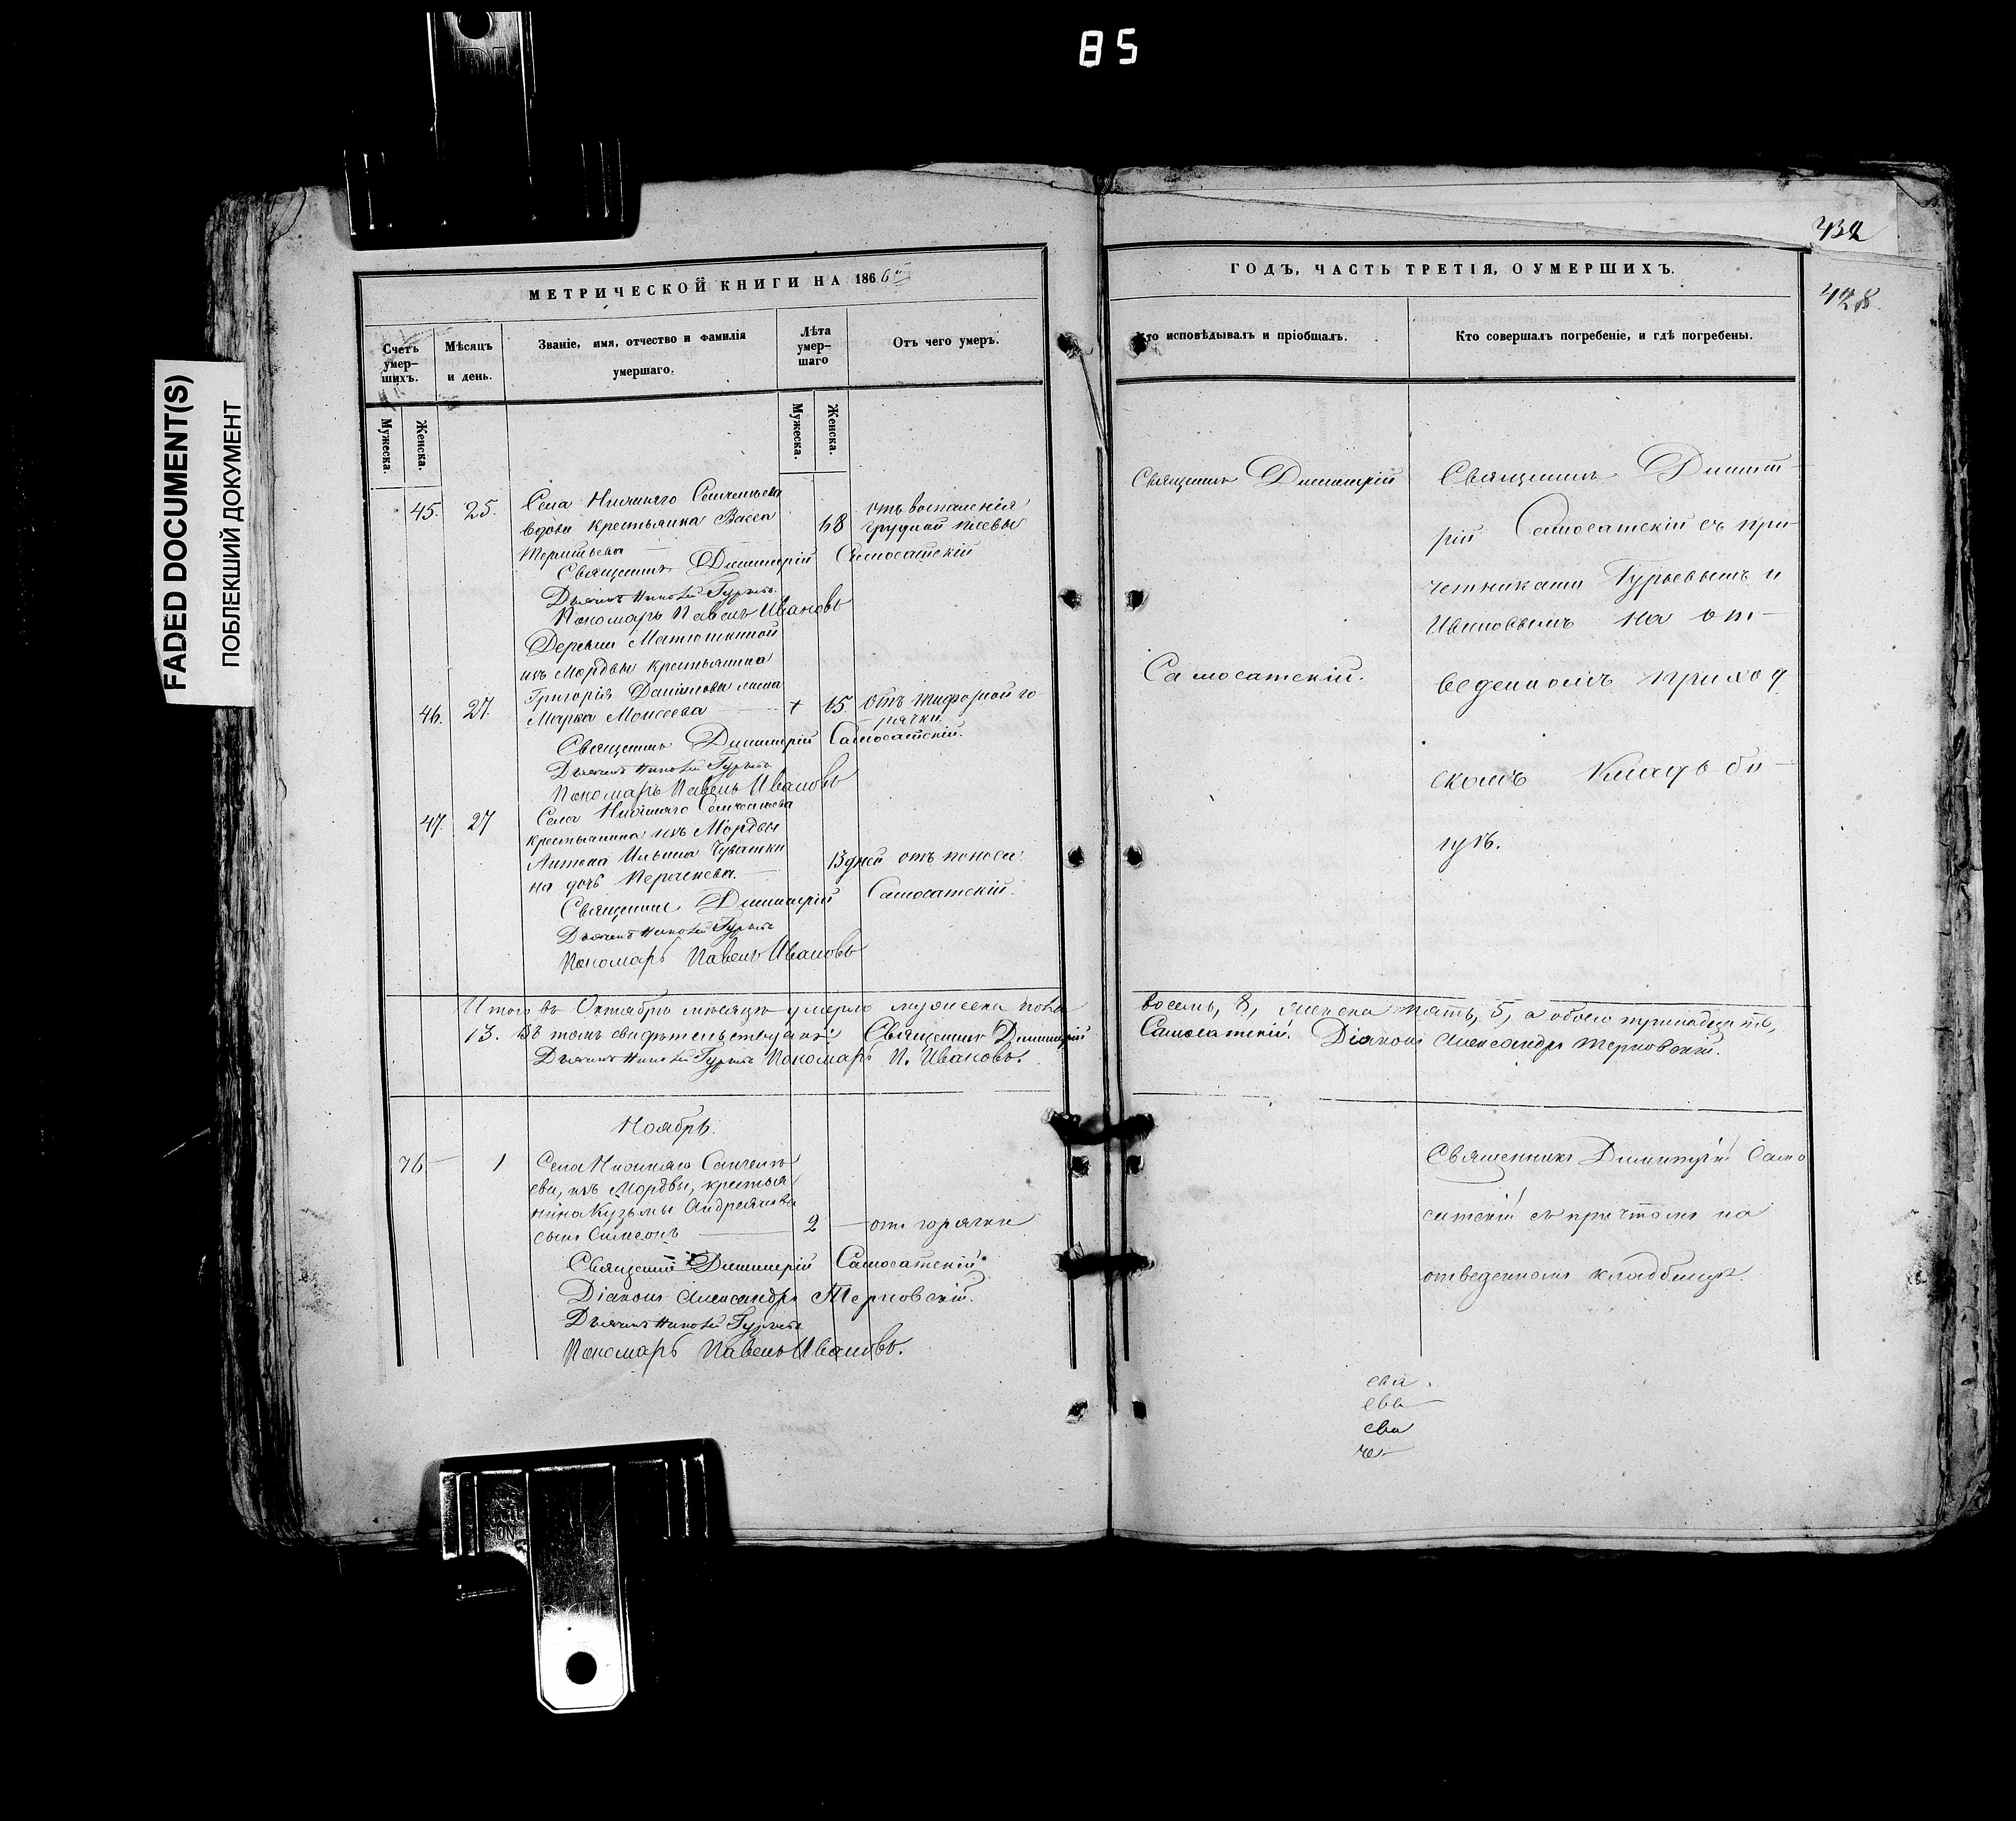 85
FADED DOCUMENT(S)
ПОБЛЕКШИЙ ДОКУМЕНТ
432
428
МЕТРИЧЕСКОЙ КНИГИ НА 1866
ГОДЪ, ЧАСТЬ ТРЕТІЯ, О УМЕРШИХЪ.
Счетъ умер-
шихъ.
Мѣсяцъ
и день.
Званіе, имя, отчество и фамилія
умершаго.
Лѣта
умер-
шаго
Отъ чего умеръ.
Кто исповѣдывалъ и пріобщалъ.
Кто совершалъ погребеніе, и гдѣ погребены.
Мужеска.
Женска.
Мужеска.
Женска.
45. 25. Села Нижняго
вдова крестьянина Васса 68 отъ воспаленія
Терентьева грудной плевы
Священникъ Димитрій Самосатскій
Дьячекъ Гурьевъ
Пономарь Павелъ Ивановъ
Деревни Матюшкиной
изъ Мордвы крестьянина
Григорія Данилова жена
46. 27. Марѳа Моисеева + 65 отъ тифозной го
рячки.
Священникъ Димитрій Самосатскій.
Дьячекъ Гурьевъ
Пономарь Павелъ Ивановъ
47. 27 Села Нижняго
крестьянина изъ Мордвы
Антона Ильина
на дочь 13 дней отъ поноса.
Священникъ Димитрій Самосатскій.
Дьячекъ Гурьевъ
Пономарь Павелъ Ивановъ
Священникъ Димитрій
Самосатскій.
Священникъ Димит-
рій Самосатскій съ при-
четниками Гурьевымъ и
Ивановымъ на от-
веденномъ приход
скомъ кладби-
щѣ.
Итого въ Октябрѣ мѣсяцѣ умерло мужеска пола восемь, 8, женска пять, 5, а обоего тринадцать,
13. Въ томъ свидѣтельствуютъ: Священникъ Димитрій Самосатскій. Діаконъ Александръ Терновскій.
Дьячекъ Гурьевъ Пономарь П. Ивановъ.
Ноябрь.
76 1 Села Нижняго Санчелѣ
ева, изъ Мордвы, крестья
нина Кузьмы Андреянова
сынъ Симеонъ 2 отъ горячки
Священникъ Димитрій Самосатскій.
Діаконъ Александръ Терновскій.
Дьячекъ Гурьевъ
Пономарь Павелъ Ивановъ.
Священникъ Димитрій Само
сатскій съ причтомъ на
отведенномъ кладбищѣ.